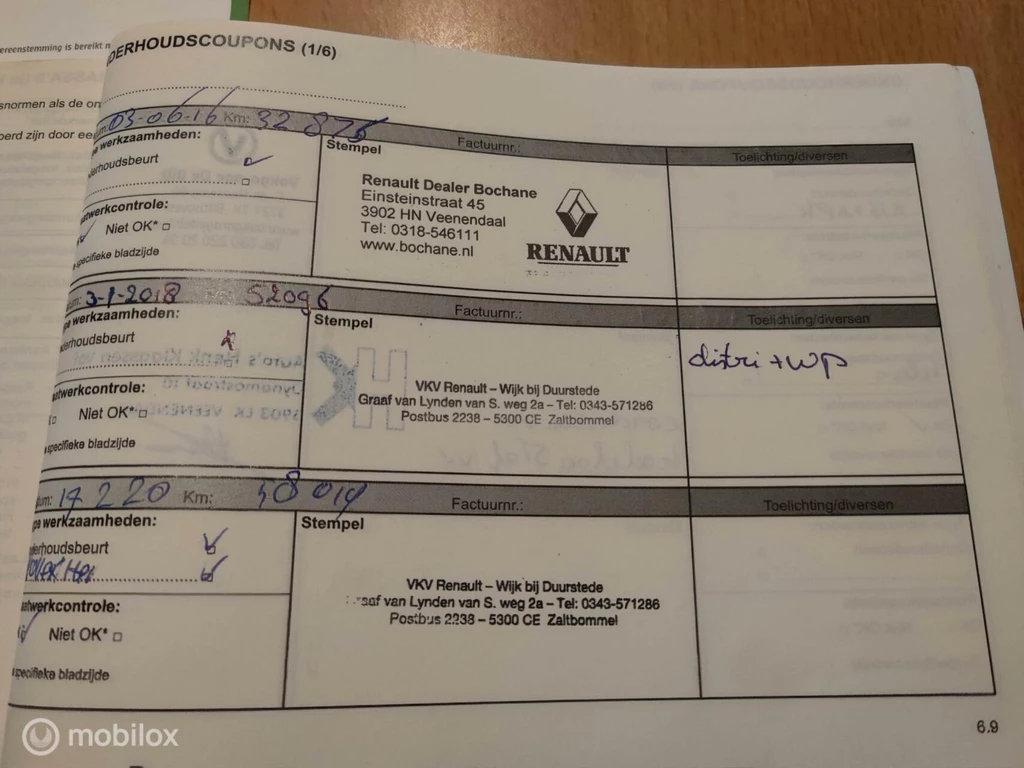 ereenstemming is bereikt
snormen als de on
oerd zijn door ee
DERHOUDSCOUPONS (1/6)
03-06-16 Km: 32 876
Factuurnr.:
Toelichting/diversen
werkzaamheden:
derhoudsbeurt
atwerkcontrole:
Niet OK*
specifieke bladzijde
Stempel
Renault Dealer Bochane
Einsteinstraat 45
3902 HN Veenendaal
Tel: 0318-546111
www.bochane.nl
RENAULT
3-1-2018 52096
Factuurnr.:
Toelichting/diversen
werkzaamheden:
derhoudsbeurt
atwerkcontrole:
Niet OK*
specifieke bladzijde
Stempel
VKV Renault – Wijk bij Duurstede
Graaf van Lynden van S. weg 2a – Tel: 0343-571286
Postbus 2238 – 5300 CE Zaltbommel
distri + wp
17 2 20 Km: 58019
Factuurnr.:
Toelichting/diversen
pe werkzaamheden:
derhoudsbeurt
atwerkcontrole:
Niet OK*
specifieke bladzijde
Stempel
VKV Renault – Wijk bij Duurstede
aaf van Lynden van S. weg 2a – Tel: 0343-571286
Postbus 2238 – 5300 CE Zaltbommel
6.9
mobilox